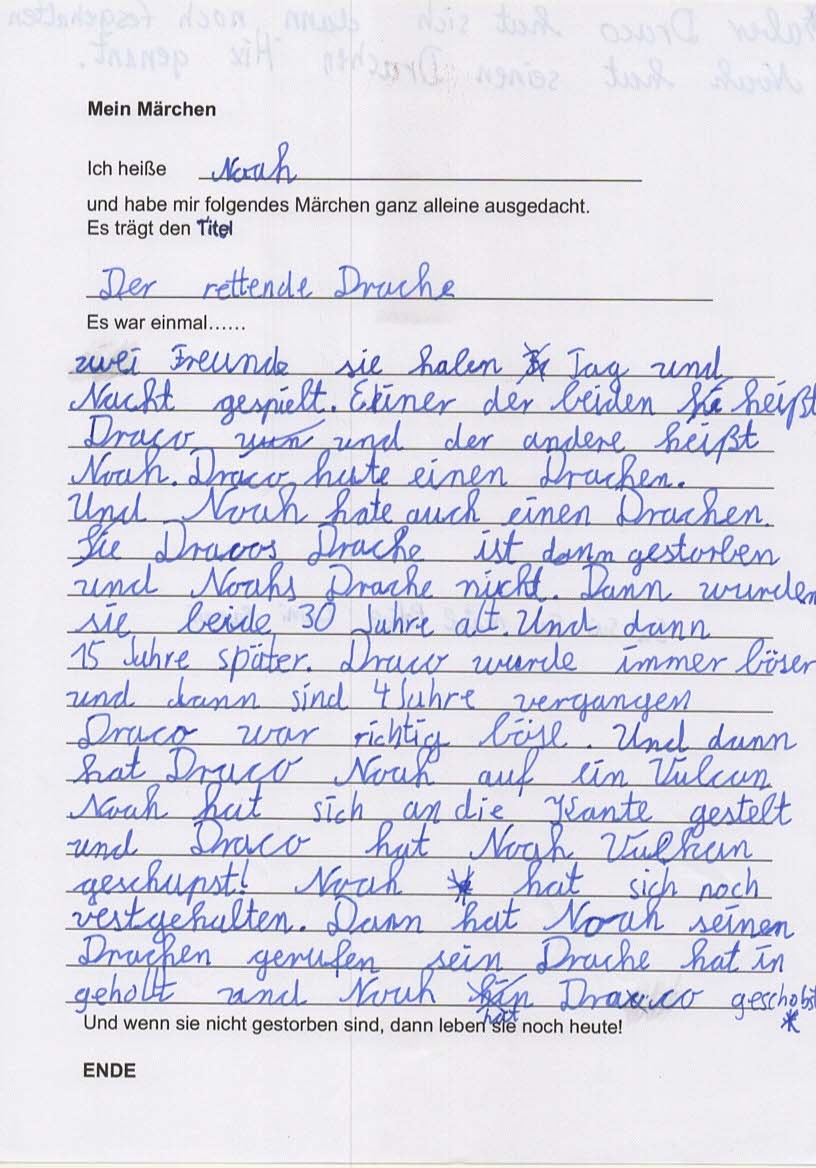 Mein Märchen
Ich heiße Noah
und habe mir folgendes Märchen ganz alleine ausgedacht.
Es trägt den Titel
Der rettende Drache
Es war einmal……
zwei Freunde sie haben Tag und
Nacht gespielt. Einer der beiden heißt
Draco und der andere heißt
Noah. Draco hate einen Drachen.
Und Noah hate auch einen Drachen.
Dracos Drache ist dann gestorben
und Noahs Drache nicht. Dann wurden
sie beide 30 Jahre alt. Und dann
15 Jahre später. Draco wurde immer böser
und dann sind 4 Jahre vergangen
Draco war richtig böse. Und dann
hat Draco Noah auf ein Vulcan
Noah hat sich an die Kante gestelt
und Draco hat Noah Vulkan
geschupst! Noah hat sich noch
vestgehalten. Dann hat Noah seinen
Drachen gerufen sein Drache hat in
gehollt und Noah hat Draco geschobst *
Und wenn sie nicht gestorben sind, dann leben sie noch heute!
ENDE